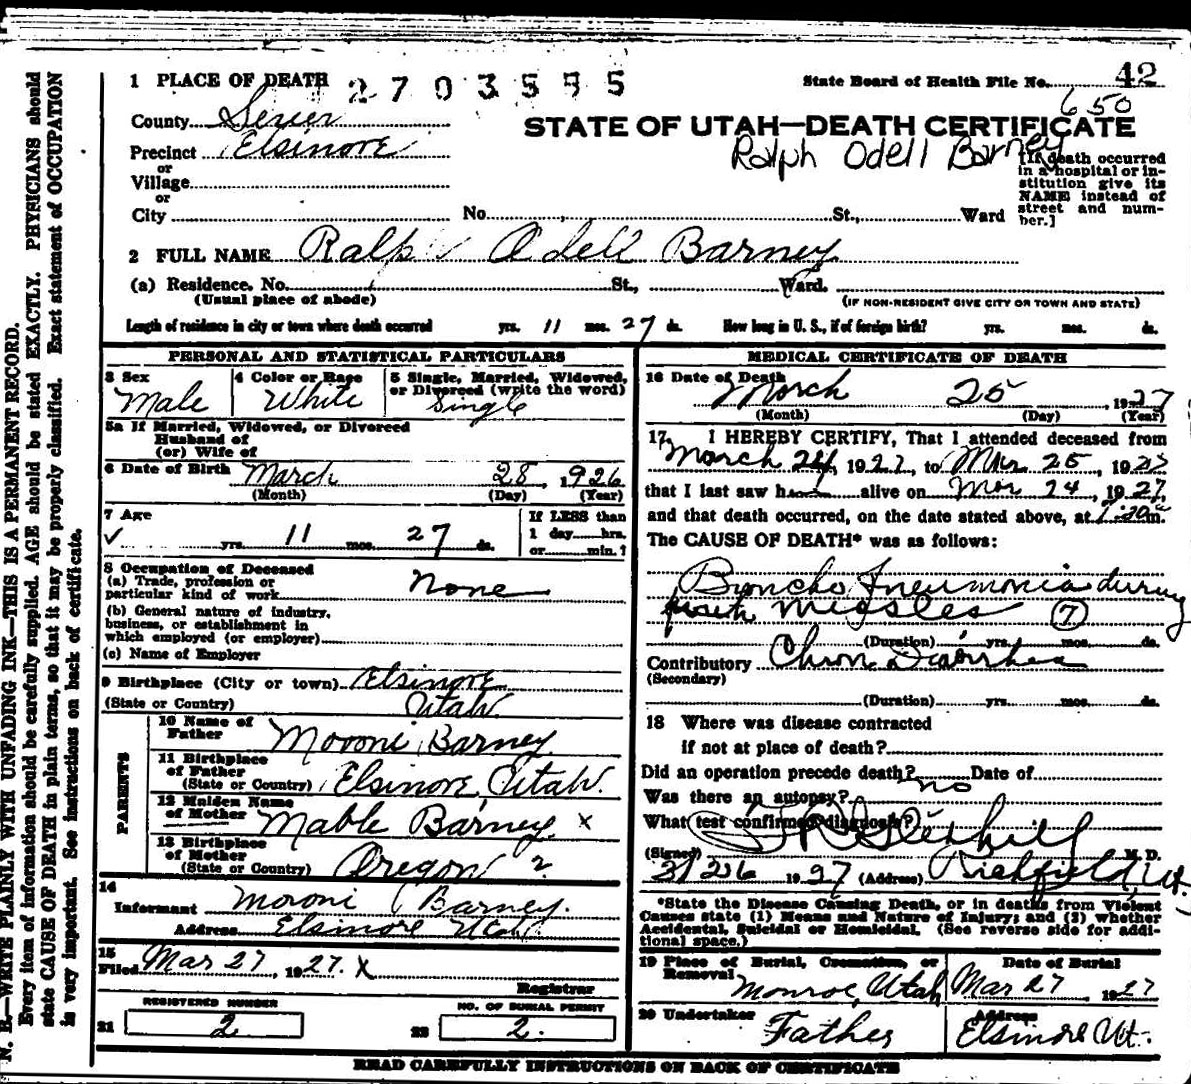 1 PLACE OF DEATH 2703595 State Board of Health File No. 42
650
County Sevier
STATE OF UTAH—DEATH CERTIFICATE
Precinct Elsinore
Ralph Odell Barney
or
Village
or
City No. , St., Ward
[If death occurred
in a hospital or in-
stitution give its
NAME instead of
street and num-
ber.]
2 FULL NAME Ralph Odell Barney
(a) Residence. No. St., Ward.
(Usual place of abode) (IF NON-RESIDENT GIVE CITY OR TOWN AND STATE)
Length of residence in city or town where death occurred yrs. 11 mos. 27 ds. How long in U. S., if of foreign birth? yrs. mos. ds.
PERSONAL AND STATISTICAL PARTICULARS
3 Sex Male
4 Color or Race White
5 Single, Married, Widowed,
or Divorced (write the word)
Single
5a If Married, Widowed, or Divorced
Husband of
(or) Wife of
6 Date of Birth March 28, 1926
(Month) (Day) (Year)
7 Age
yrs. 11 mos. 27 ds.
If LESS than
1 day hrs.
or min.?
8 Occupation of Deceased
(a) Trade, profession or
particular kind of work None
(b) General nature of industry,
business, or establishment in
which employed (or employer)
(c) Name of Employer
9 Birthplace (City or town) Elsinore
(State or Country) Utah
PARENTS
10 Name of
Father Moroni Barney
11 Birthplace
of Father
(State or Country) Elsinore, Utah.
12 Maiden Name
of Mother Mable Barney x
13 Birthplace
of Mother
(State or Country) Oregon ?
14
Informant Moroni Barney.
Address Elsinore Utah
15
Filed Mar 27, 1927. x
Registrar
REGISTERED NUMBER
21 2
NO. OF BURIAL PERMIT
22 2.
MEDICAL CERTIFICATE OF DEATH
16 Date of Death
March 25, 1927
(Month) (Day) (Year)
17 I HEREBY CERTIFY, That I attended deceased from
March 24, 1927, to Mar 25, 1927
that I last saw h alive on Mar 24, 1927,
and that death occurred, on the date stated above, at :20 m.
The CAUSE OF DEATH* was as follows:
Broncho Pneumonia during
Measles 7
(Duration) yrs. mos. ds.
Contributory Chron. Diarrhea
(Secondary)
(Duration) yrs. mos. ds.
18 Where was disease contracted
if not at place of death?
Did an operation precede death? no Date of
Was there an autopsy?
What test confirmed diagnosis?
(Signed) M. D.
3/26 1927 (Address) Richfield, Ut.
*State the Disease Causing Death, or in deaths from Violent
Causes state (1) Means and Nature of Injury; and (2) whether
Accidental, Suicidal or Homicidal. (See reverse side for addi-
tional space.)
19 Place of Burial, Cremation, or
Removal
Monroe, Utah
Date of Burial
Mar 27, 1927
20 Undertaker
Father
Address
Elsinore Ut.
READ CAREFULLY INSTRUCTIONS ON BACK OF CERTIFICATE
N. B.—WRITE PLAINLY WITH UNFADING INK—THIS IS A PERMANENT RECORD.
Every item of information should be carefully supplied. AGE should be stated EXACTLY. PHYSICIANS should
state CAUSE OF DEATH in plain terms, so that it may be properly classified. Exact statement of OCCUPATION
is very important. See instructions on back of certificate.